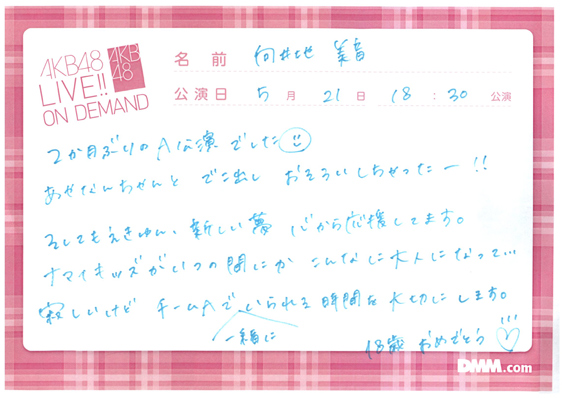 AKB48
LIVE!!
ON DEMAND
AKB
48
名前 向井地 美音
公演日 5月21日 18:30 公演
2か月ぶりのA公演でした
あやなんちゃんと でこ出し おそろいしちゃったー!!
そしてもえきゅん、新しい夢 心から応援してます。
ナマイキッズがいつの間にか こんなに大人になって…
寂しいけど チームAで、いられる時間を大切にします。
一緒に
18歳 おめでとう♡
DMM.com